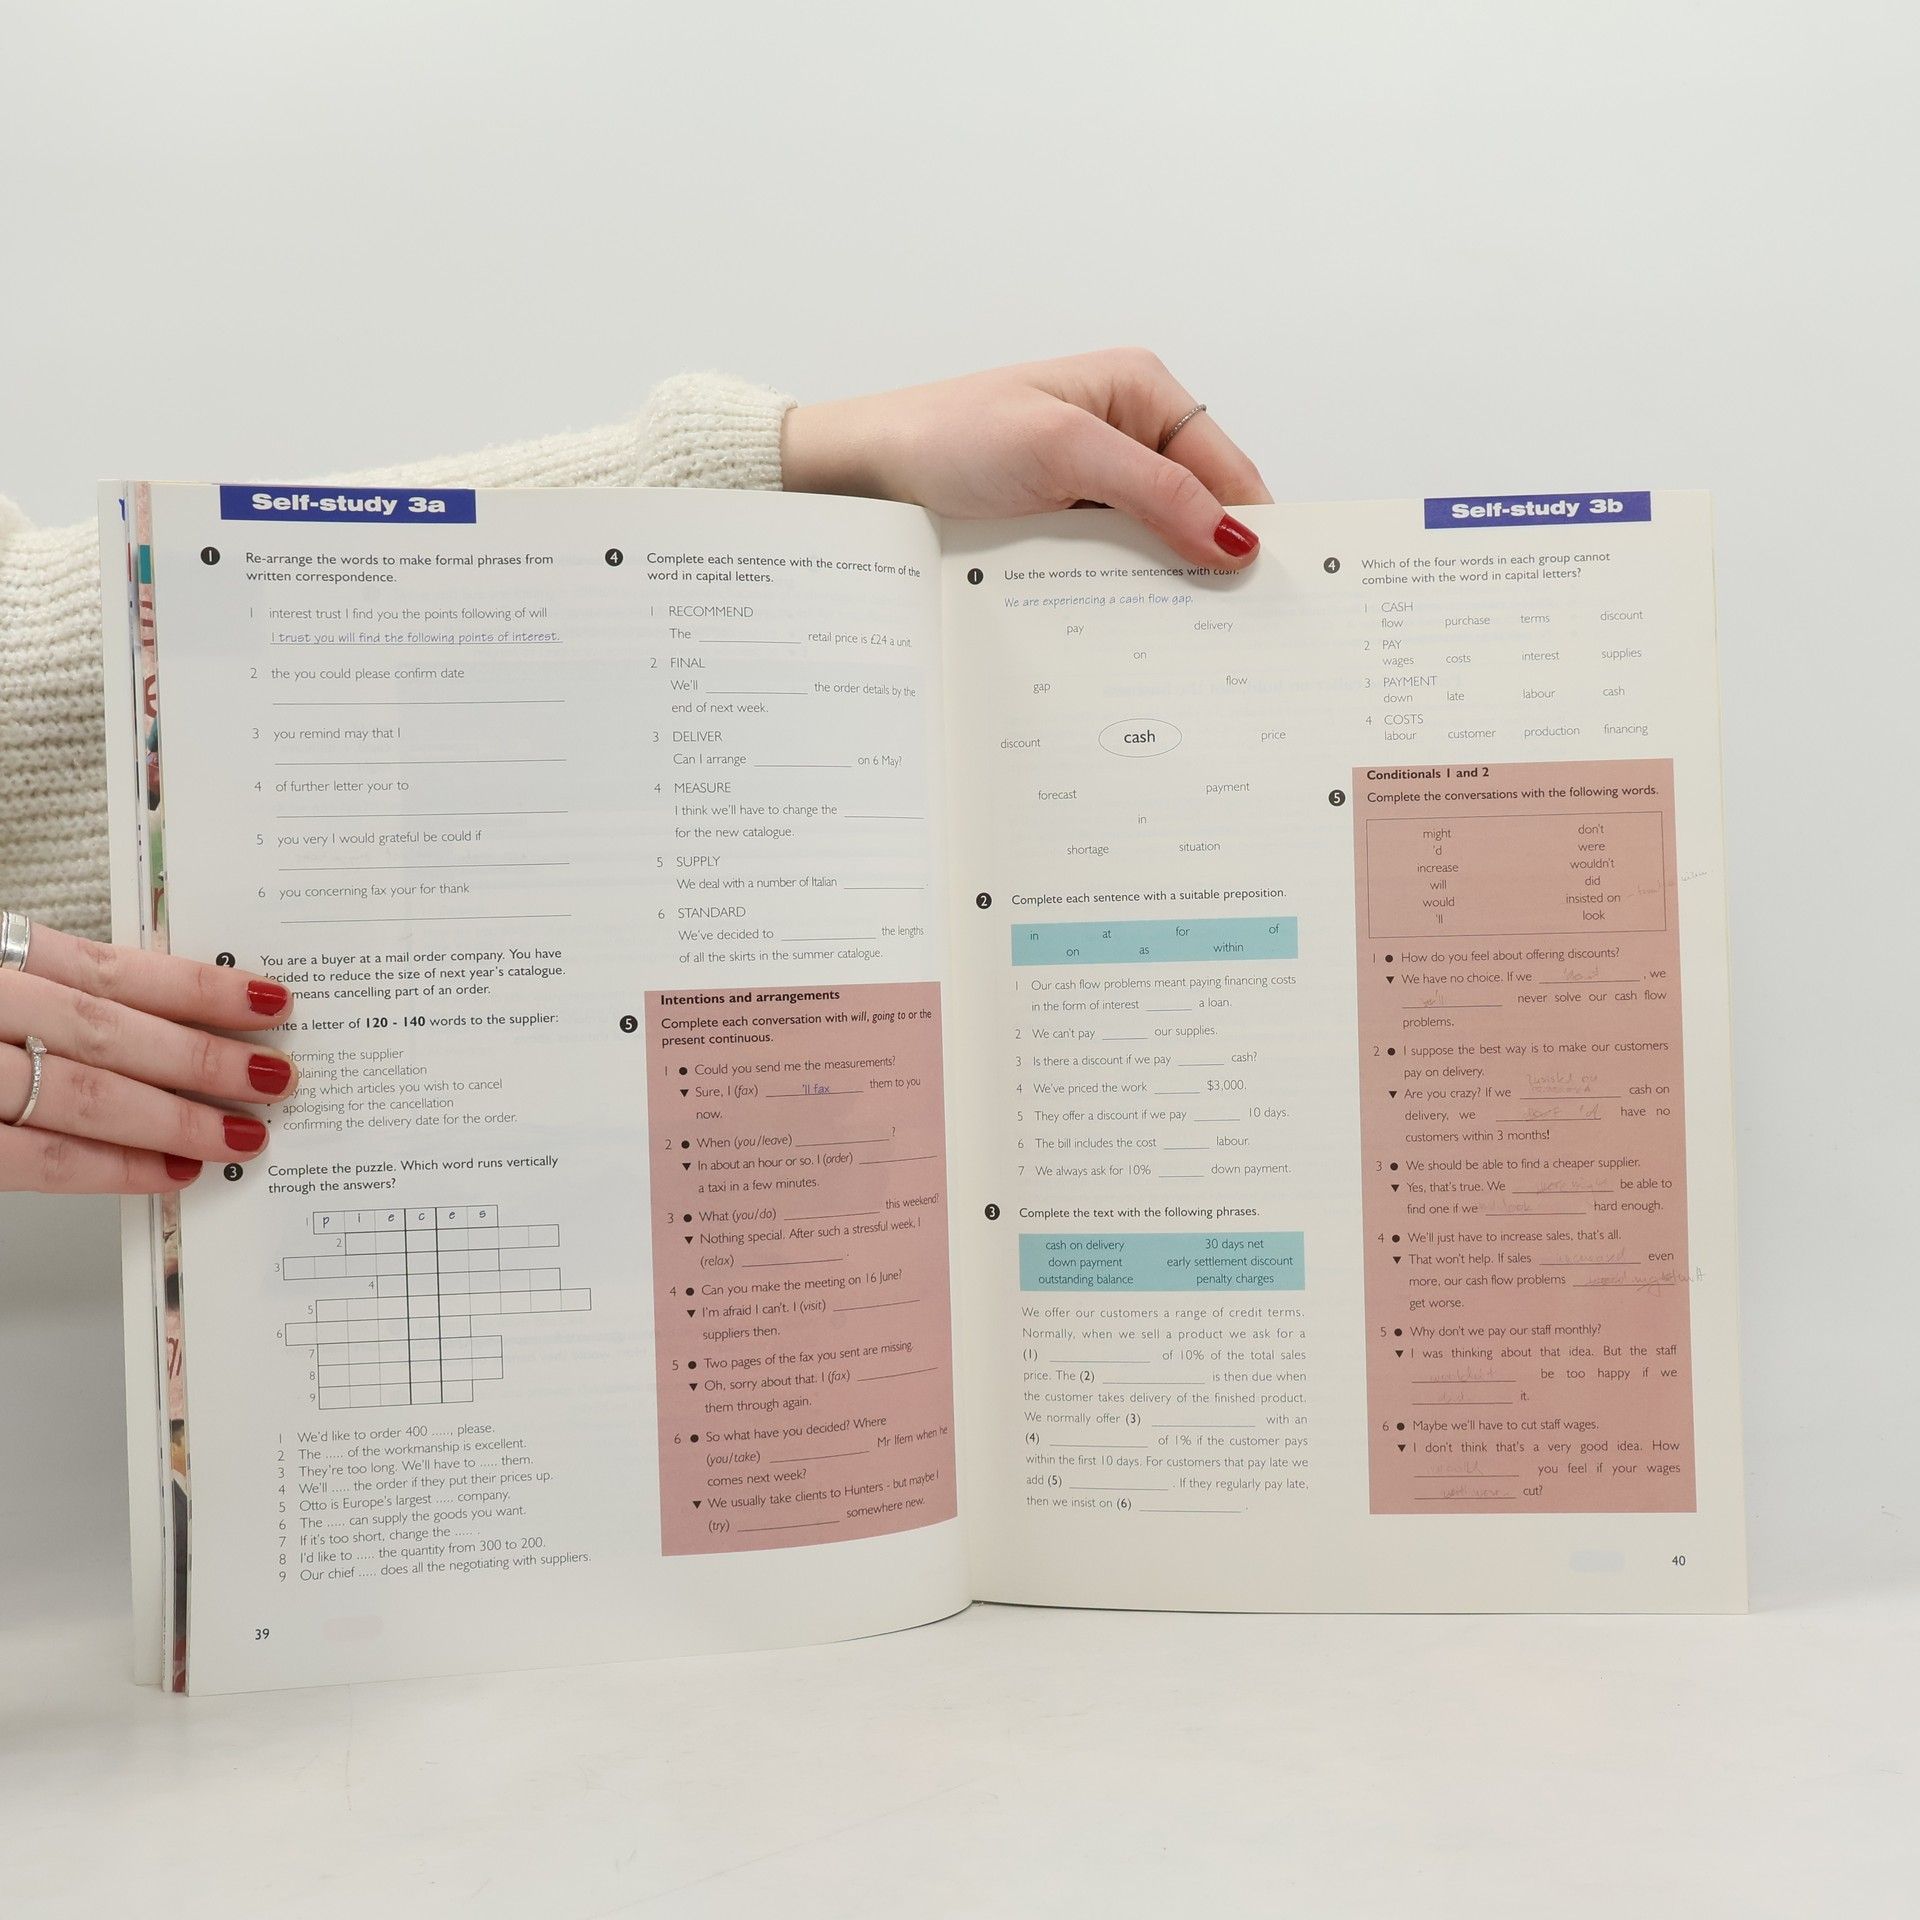 Self-study 3a
1 Re-arrange the words to make formal phrases from
written correspondence.
1 interest trust I find you the points following of will
I trust you will find the following points of interest.
2 the you could please confirm date
3 you remind may that I
4 of further letter your to
5 you very I would grateful be could if
6 you concerning fax your for thank
2 You are a buyer at a mail order company. You have
decided to reduce the size of next year's catalogue.
means cancelling part of an order.
a letter of 120 - 140 words to the supplier:
the supplier
the cancellation
which articles you wish to cancel
• apologising for the cancellation
• confirming the delivery date for the order.
3 Complete the puzzle. Which word runs vertically
through the answers?
1 p i e c e s
2
3
4
5
6
7
8
9
1 We'd like to order 400 ....., please.
2 The ..... of the workmanship is excellent.
3 They're too long. We'll have to ..... them.
4 We'll ..... the order if they put their prices up.
5 Otto is Europe's largest ..... company.
6 The ..... can supply the goods you want.
7 If it's too short, change the ..... .
8 I'd like to ..... the quantity from 300 to 200.
9 Our chief ..... does all the negotiating with suppliers.
39
4 Complete each sentence with the correct form of the
word in capital letters.
1 RECOMMEND
The ____ retail price is £24 a unit.
2 FINAL
We'll ____ the order details by the
end of next week.
3 DELIVER
Can I arrange ____ on 6 May?
4 MEASURE
I think we'll have to change the ____
for the new catalogue.
5 SUPPLY
We deal with a number of Italian ____.
6 STANDARD
We've decided to ____ the lengths
of all the skirts in the summer catalogue.
Intentions and arrangements
5 Complete each conversation with will, going to or the
present continuous.
1 ● Could you send me the measurements?
▼ Sure, I (fax) 'll fax them to you
now.
2 ● When (you/leave) ____?
▼ In about an hour or so. I (order) ____
a taxi in a few minutes.
3 ● What (you/do) ____ this weekend?
▼ Nothing special. After such a stressful week, I
(relax) ____.
4 ● Can you make the meeting on 16 June?
▼ I'm afraid I can't. I (visit) ____
suppliers then.
5 ● Two pages of the fax you sent are missing.
▼ Oh, sorry about that. I (fax) ____
them through again.
6 ● So what have you decided? Where
(you/take) ____ Mr Ifem when he
comes next week?
▼ We usually take clients to Hunters - but maybe I
(try) ____ somewhere new.
Self-study 3b
1 Use the words to write sentences with cash.
We are experiencing a cash flow gap.
pay delivery
on
gap flow
discount cash price
forecast payment
in
shortage situation
2 Complete each sentence with a suitable preposition.
in at for of
on as within
1 Our cash flow problems meant paying financing costs
in the form of interest ____ a loan.
2 We can't pay ____ our supplies.
3 Is there a discount if we pay ____ cash?
4 We've priced the work ____ $3,000.
5 They offer a discount if we pay ____ 10 days.
6 The bill includes the cost ____ labour.
7 We always ask for 10% ____ down payment.
3 Complete the text with the following phrases.
cash on delivery 30 days net
down payment early settlement discount
outstanding balance penalty charges
We offer our customers a range of credit terms.
Normally, when we sell a product we ask for a
(1) ____ of 10% of the total sales
price. The (2) ____ is then due when
the customer takes delivery of the finished product.
We normally offer (3) ____ with an
(4) ____ of 1% if the customer pays
within the first 10 days. For customers that pay late we
add (5) ____. If they regularly pay late,
then we insist on (6) ____.
4 Which of the four words in each group cannot
combine with the word in capital letters?
1 CASH
flow purchase terms discount
2 PAY
wages costs interest supplies
3 PAYMENT
down late labour cash
4 COSTS
labour customer production financing
Conditionals 1 and 2
5 Complete the conversations with the following words.
might don't
'd were
increase wouldn't
will did
would insisted on
'll look
1 ● How do you feel about offering discounts?
▼ We have no choice. If we ____, we
____ never solve our cash flow
problems.
2 ● I suppose the best way is to make our customers
pay on delivery.
▼ Are you crazy? If we ____ cash on
delivery, we ____ have no
customers within 3 months!
3 ● We should be able to find a cheaper supplier.
▼ Yes, that's true. We ____ be able to
find one if we look hard enough.
4 ● We'll just have to increase sales, that's all.
▼ That won't help. If sales ____ even
more, our cash flow problems ____
get worse.
5 ● Why don't we pay our staff monthly?
▼ I was thinking about that idea. But the staff
wouldn't be too happy if we
did it.
6 ● Maybe we'll have to cut staff wages.
▼ I don't think that's a very good idea. How
would you feel if your wages
were cut?
40